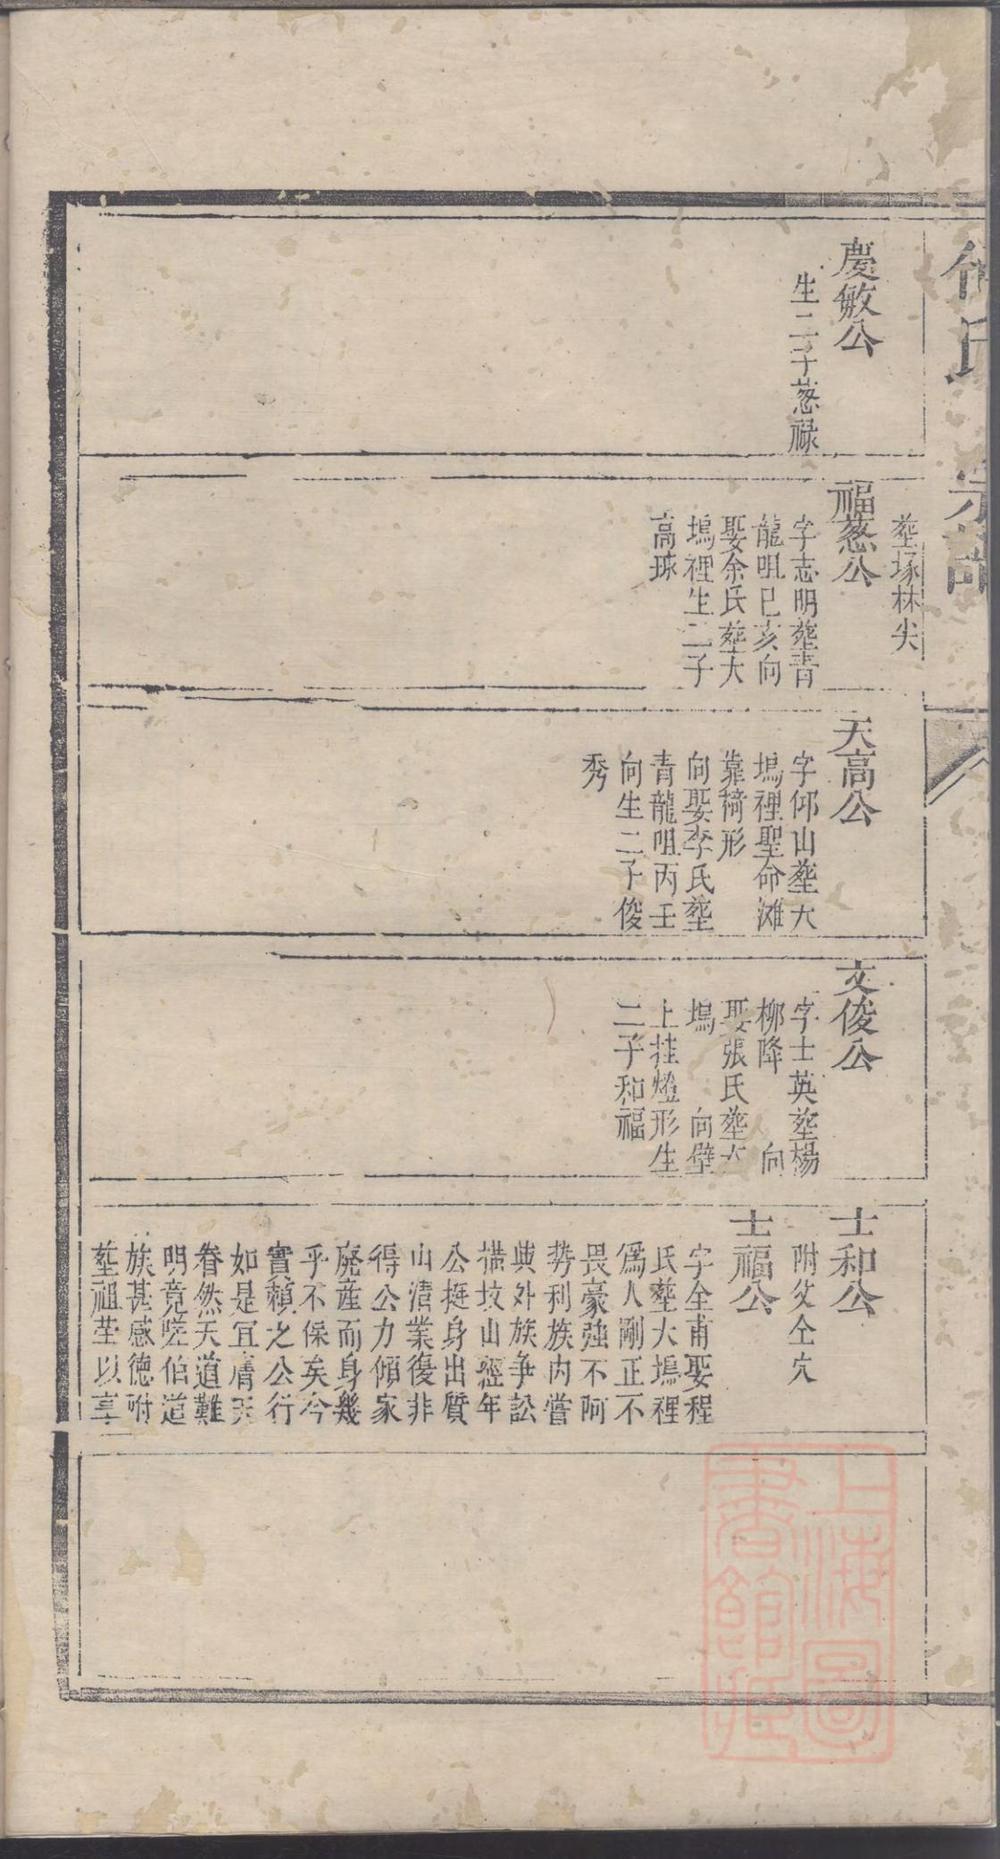 氏
宗譜
慶敏公
生二子葱禄
塟塚林尖
福葱公
字志明塟青
龍咀巳亥向
娶余氏塟大
塢裡生二子
高琭
天高公
字仰山塟大
塢裡聖命滩
靠椅形
向娶李氏塟
青龍咀丙壬
向生二子俊
秀
文俊公
字士英塟楊
柳降　向
娶張氏塟大
塢　向壁
上挂燈形生
二子和福
士和公
附父仝穴
士福公
字全甫娶程
氏塟大塢裡
為人剛正不
畏豪強不阿
势利族内嘗
與外族爭訟
搽坟山經年
公挺身出質
山清業復非
得公力傾家
廃産而身幾
乎不保矣今
實賴之公行
如是宜膺天
眷然天道難
明竟嗟伯道
族甚感德附
塟祖茔以享
上海圖書館藏